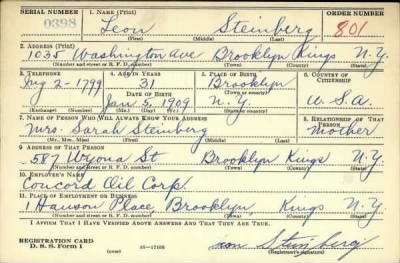 SERIAL NUMBER 1. NAME (Print) ORDER NUMBER
0398 Leon Steinberg 801
(First) (Middle) (Last)
2. ADDRESS (Print)
1035 Washington Ave Brooklyn Kings N.Y.
(Number and street or R. F. D. number) (Town) (County) (State)
3. TELEPHONE 4. AGE IN YEARS 5. PLACE OF BIRTH 6. COUNTRY OF CITIZENSHIP
31 Brooklyn
2-1799 DATE OF BIRTH (Town or county)
Jan 5, 1909 N.Y. U.S.A.
(Exchange) (Number) (Mo.) (Day) (Yr.) (State or country)
7. NAME OF PERSON WHO WILL ALWAYS KNOW YOUR ADDRESS 8. RELATIONSHIP OF THAT PERSON
Mrs. Sarah Steinberg Mother
(Mr., Mrs., Miss) (First) (Middle) (Last)
9. ADDRESS OF THAT PERSON
587 Wyona St Brooklyn Kings N.Y.
(Number and street or R. F. D. number) (Town) (County) (State)
10. EMPLOYER'S NAME
Concord Oil Corp.
11. PLACE OF EMPLOYMENT OR BUSINESS
Hanson Place Brooklyn Kings N.Y.
(Number and street or R. F. D. number) (Town) (County) (State)
I AFFIRM THAT I HAVE VERIFIED ABOVE ANSWERS AND THAT THEY ARE TRUE.
REGISTRATION CARD
D. S. S. Form 1 (over) 16-17105 Steinberg
(Registrant's signature)